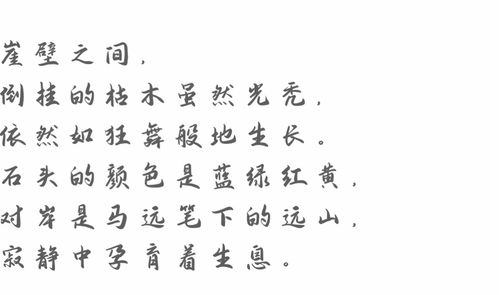 崖壁之间，
倒挂的枯木虽然光秃，
依然如狂舞般地生长。
石头的颜色是蓝绿红黄，
对岸是马远笔下的远山，
寂静中孕育着生息。